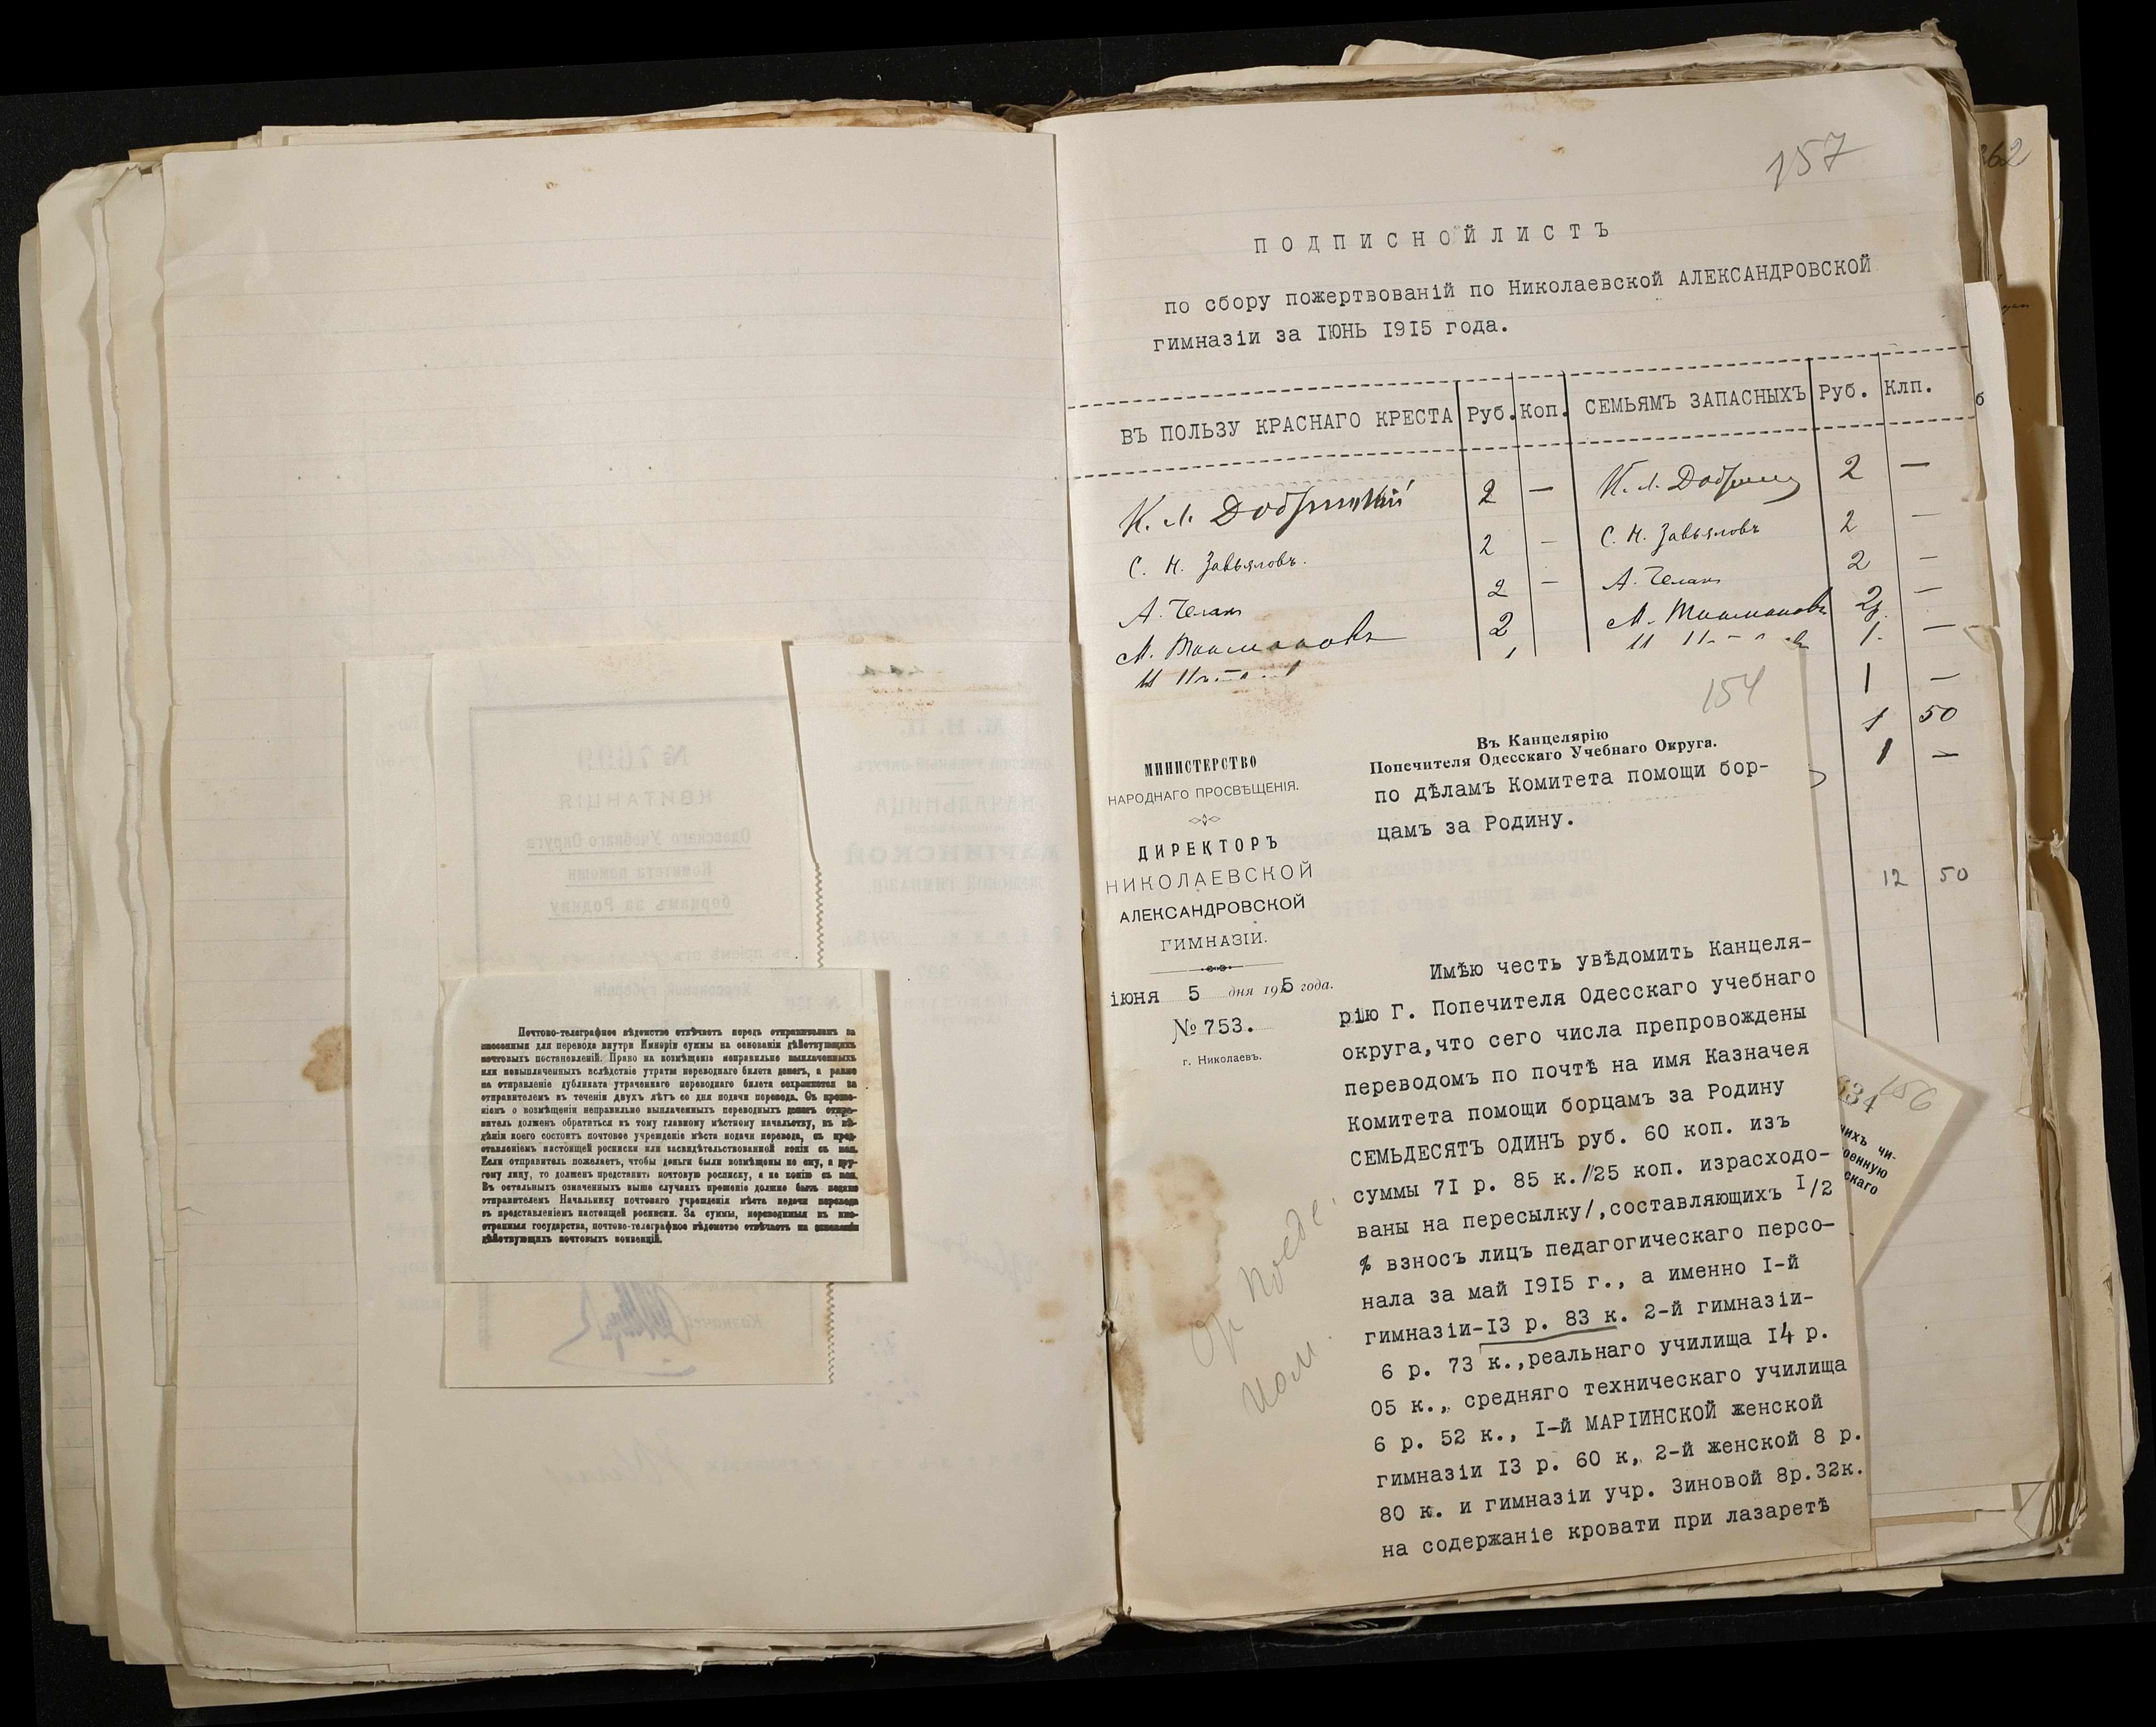 157
ПОДПИСНОЙ ЛИСТЪ
по сбору пожертвованій по Николаевской АЛЕКСАНДРОВСКОЙ
гимназіи за ІЮНЬ 1915 года.
ВЪ ПОЛЬЗУ КРАСНАГО КРЕСТА Руб. Коп. СЕМЬЯМЪ ЗАПАСНЫХЪ Руб. Клп.
К. Л. 2 — К. Л. 2 —
С. Н. Завьяловъ. 2 — С. Н. Завьяловъ 2 —
А. 2 — А. 2 —
М. 2 М. 2 —
1 —
1 —
1 50
1 —
12 50
154
МИНИСТЕРСТВО
НАРОДНАГО ПРОСВѢЩЕНІЯ.
ДИРЕКТОРЪ
НИКОЛАЕВСКОЙ
АЛЕКСАНДРОВСКОЙ
ГИМНАЗІИ.
іюня 5 дня 1915 года.
№ 753.
г. Николаевъ.
Въ Канцелярію
Попечителя Одесскаго Учебнаго Округа.
по дѣламъ Комитета помощи бор-
цамъ за Родину.
Имѣю честь увѣдомить Канцеля-
рію Г. Попечителя Одесскаго учебнаго
округа,что сего числа препровождены
переводомъ по почтѣ на имя Казначея
Комитета помощи борцамъ за Родину
СЕМЬДЕСЯТЪ ОДИНЪ руб. 60 коп. изъ
суммы 7І р. 85 к.//25 коп. израсходо-
ваны на пересылку/,составляющихъ І/2
% взносъ лицъ педагогическаго персо-
нала за май І9І5 г., а именно І-й
гимназіи-І3 р. 83 к. 2-й гимназіи-
6 р. 73 к.,реальнаго училища І4 р.
05 к., средняго техническаго училища
6 р. 52 к., І-й МАРІИНСКОЙ женской
гимназіи І3 р. 60 к, 2-й женской 8 р.
80 к. и гимназіи учр. Зиновой 8р.32к.
на содержаніе кровати при лазаретѣ
156
Почтово-телеграфное вѣдомство отвѣчаетъ передъ отправителемъ за
внесенныя для перевода внутри Имперіи суммы на основаніи дѣйствующихъ
почтовыхъ постановленій. Право на возмѣщеніе неправильно выплаченныхъ
или невыплаченныхъ вслѣдствіе утраты переводнаго билета денегъ, а равно
на отправленіе дубликата утраченнаго переводнаго билета сохраняется за
отправителемъ въ теченіи двухъ лѣтъ со дня подачи перевода. Съ проше-
ніемъ о возмѣщеніи неправильно выплаченныхъ переводныхъ денегъ отпра-
витель долженъ обратиться къ тому главному мѣстному начальству, въ вѣ-
дѣніи коего состоитъ почтовое учрежденіе мѣста подачи перевода, съ пред-
ставленіемъ настоящей росписки или засвидѣтельствованной копіи съ нея.
Если отправитель пожелаетъ, чтобы деньги были возмѣщены не ему, а дру-
гому лицу, то долженъ представить почтовую росписку, а не копію съ нея.
Въ остальныхъ означенныхъ выше случаяхъ прошеніе должно быть подано
отправителемъ Начальнику почтоваго учрежденія мѣста подачи перевода
съ представленіемъ настоящей росписки. За суммы, переводимыя въ ино-
странныя государства, почтово-телеграфное вѣдомство отвѣчаетъ на основаніи
дѣйствующихъ почтовыхъ конвенцій.